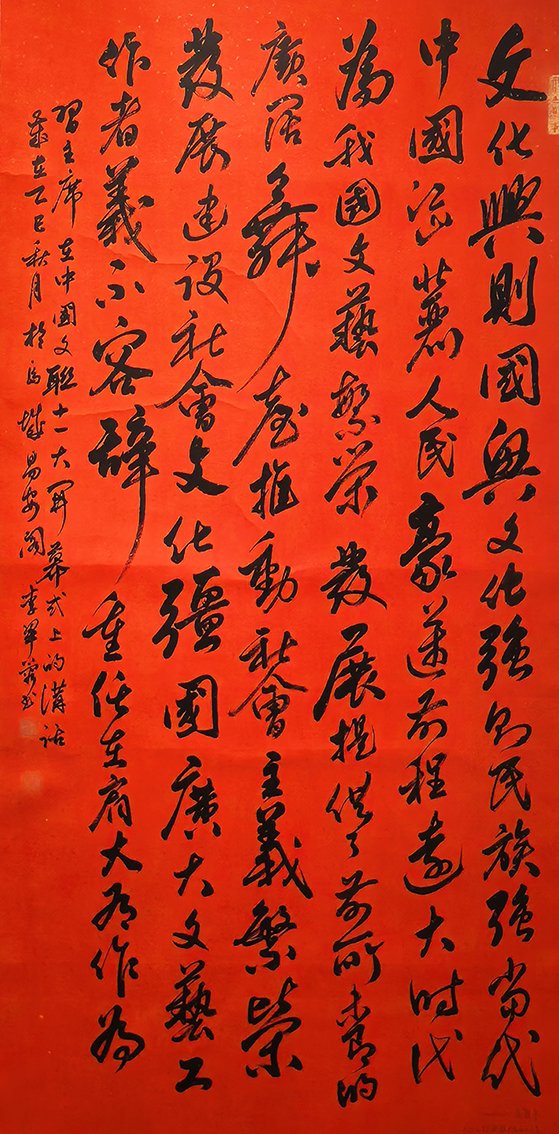 文化興則國興文化強則民族強當代
中國江山壯麗人民豪邁前程遠大時代
為我國文藝繁榮發展提供了前所未有的
廣闊舞臺推動社會主義繁榮
發展建設社會文化強國廣大文藝工
作者義不容辭重任在肩大有作為
習主席在中國文聯十一大開幕式上的講話
歲在乙巳秋月於
易安閣李翠